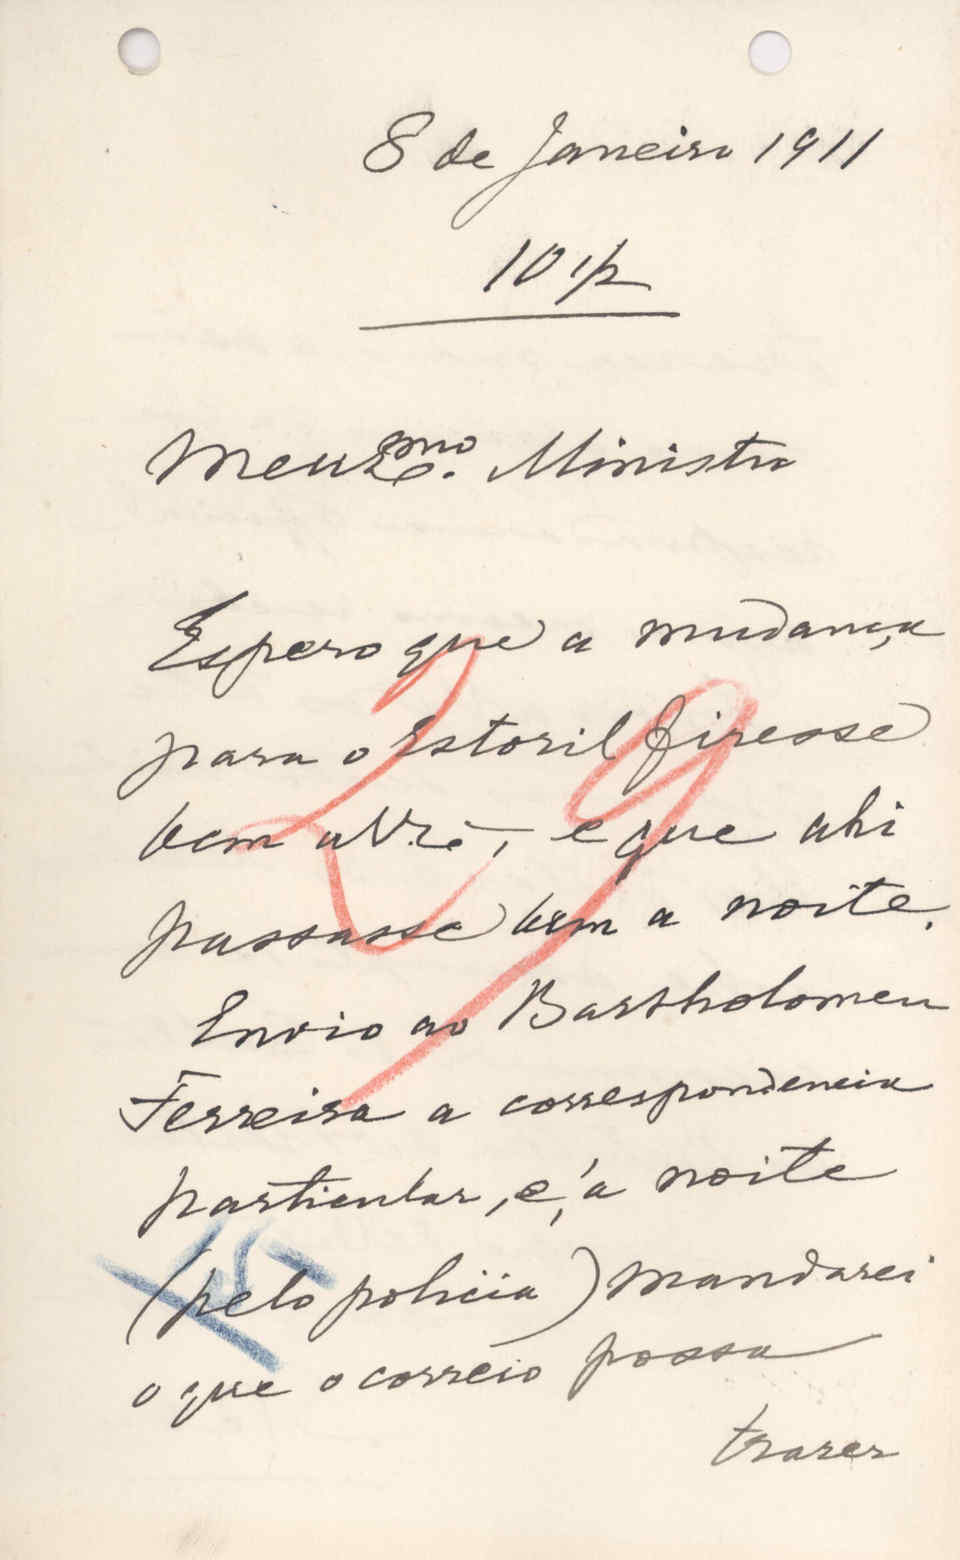 8 de Janeiro 1911
10 1/2
Meu Exmo. Ministro
Espero que a mudança
para o Estoril fizesse
bem a V. Exª, e que ahi
passasse bem a noite.
Envio ao Bartholomeu
Ferreira a correspondencia
particular, e, á noite
(pelo policia) mandarei
o que o correio possa
trazer
29